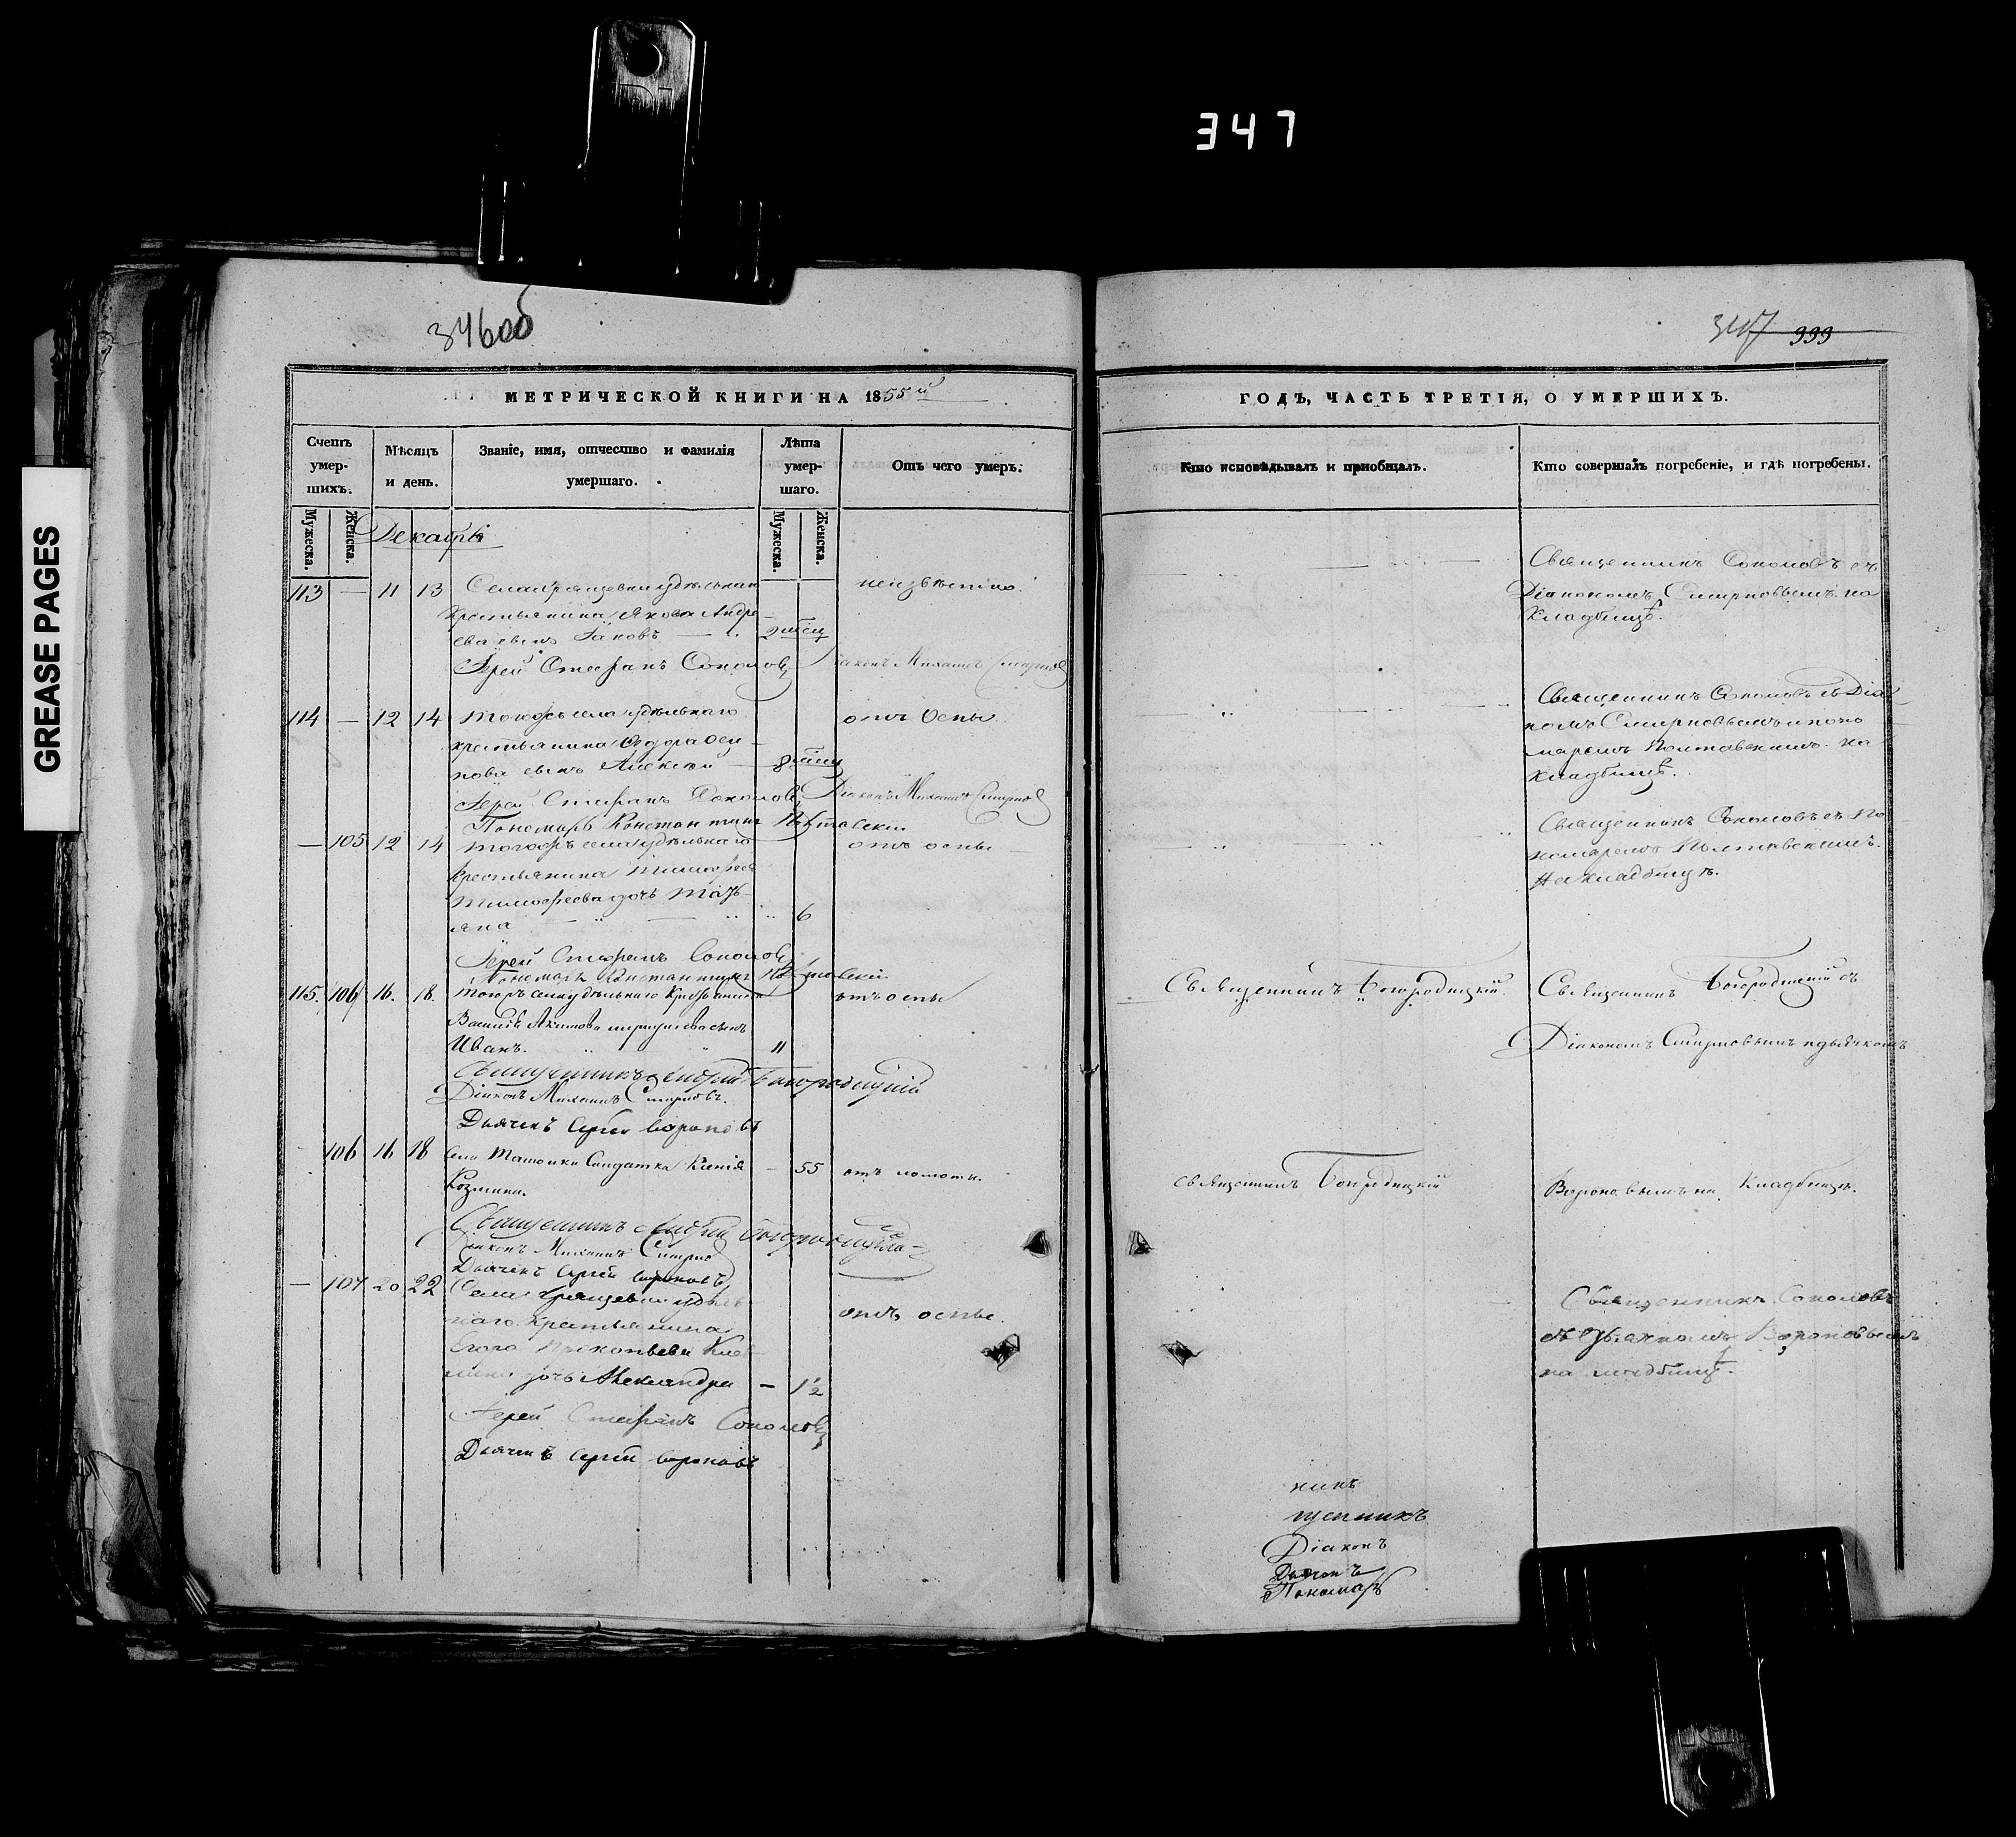 347
GREASE PAGES
346об
347 999
МЕТРИЧЕСКОЙ КНИГИ НА 1855й
ГОДЪ, ЧАСТЬ ТРЕТІЯ, О УМЕРШИХЪ.
Счетъ умер- шихъ.
Мѣсяцъ и день.
Званіе, имя, отчество и фамилія умершаго.
Лѣта умер- шаго.
Отъ чего умеръ.
Кто исповѣдывалъ и пріобщалъ.
Кто совершалъ погребеніе, и гдѣ погребены.
Мужеска. Женска.
Мужеска. Женска.
Декабрь
113 — 11 13 Села удѣльнаго неизвѣстно.
крестьянина Якова Андре-
ева сынъ Іаковъ
Іерей Стефанъ Соколовъ Діаконъ Михаилъ Смирновъ
Священникъ Соколовъ съ
Діакономъ Смирновымъ на
кладбищѣ.
114 — 12 14 Тогожъ села удѣльнаго отъ оспы
крестьянина Ѳедора Оси-
пова сынъ Алексѣй
Іерей Стефанъ Соколовъ Діаконъ Михаилъ Смирновъ
Пономарь Константинъ Полтавскій
Священникъ Соколовъ съ Діа
кономъ Смирновымъ и поно
маремъ Полтавскимъ на
кладбищѣ.
— 105 12 14 Тогожъ села удѣльнаго отъ оспы
крестьянина Тимофея
Тимофеева дочь Тать-
яна 6
Іерей Стефанъ Соколовъ
Пономарь Константинъ Полтавскій
Священникъ Соколовъ съ По
номаремъ Полтавскимъ.
На кладбищѣ.
115. 106 16. 18. Тогожъ села удѣльнаго Крестьянина отъ оспы
Василія Акимова сынъ
Иванъ. 11
Священникъ Андрей Богородицкій
Діаконъ Михаилъ Смирновъ.
Дьячекъ Сергей Вороновъ
Священникъ Богородицкій.
Священникъ Богородицкій съ
Діакономъ Смирновымъ и дьячкомъ
106 16 18 Села Солдатка Ксенія — 55 отъ
Козмина.
Священникъ Андрей Богородицкій
Діаконъ Михаилъ Смирновъ
Дьячекъ Сергей Вороновъ
Священникъ Богородицкій
Вороновымъ на Кладбищѣ.
— 107 20 22 Села удѣль
наго крестьянина отъ оспы.
Егора Прокопьева
дочь Александра — 1½
Іерей Стефанъ Соколовъ
Дьячекъ Сергей Вороновъ
Священникъ Соколовъ
съ Дьячкомъ Вороновымъ
на кладбищѣ.
никъ
щенникъ
Діаконъ
Дьячекъ
Пономарь